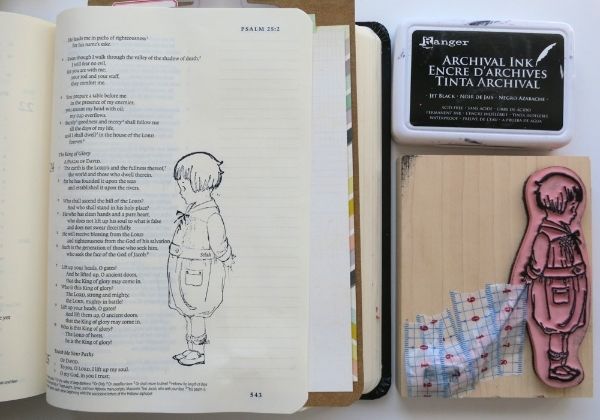 PSALM 25:2
He leads me in paths of righteousness
for his name's sake.
Even though I walk through the valley of the shadow of death,
I will fear no evil,
for you are with me;
your rod and your staff,
they comfort me.
You prepare a table before me
in the presence of my enemies;
you anoint my head with oil;
my cup overflows.
Surely goodness and mercy shall follow me
all the days of my life,
and I shall dwell in the house of the LORD
forever.
The King of Glory
A PSALM OF DAVID.
24 The earth is the LORD's and the fullness thereof,
the world and those who dwell therein,
for he has founded it upon the seas
and established it upon the rivers.
Who shall ascend the hill of the LORD?
And who shall stand in his holy place?
He who has clean hands and a pure heart,
who does not lift up his soul to what is false
and does not swear deceitfully.
He will receive blessing from the LORD
and righteousness from the God of his salvation.
Such is the generation of those who seek him,
who seek the face of the God of Jacob.
Selah
Lift up your heads, O gates!
And be lifted up, O ancient doors,
that the King of glory may come in.
Who is this King of glory?
The LORD, strong and mighty,
the LORD, mighty in battle!
Lift up your heads, O gates!
And lift them up, O ancient doors,
that the King of glory may come in.
Who is this King of glory?
The LORD of hosts,
he is the King of glory!
Teach Me Your Paths
OF DAVID.
25 To you, O LORD, I lift up my soul.
O my God, in you I trust;
543
Ranger
ARCHIVAL INK
ENCRE D'ARCHIVES
TINTA ARCHIVAL
· JET BLACK · NOIR DE JAIS · NEGRO AZABACHE ·
ACID FREE · SANS ACIDE · LIBRE DE ÁCIDO
PERMANENT INK · L'ENCRE INDÉLÉBILE · TINTA INDELEBLE
WATERPROOF · PREUVE DE L'EAU · A PRUEBA DE AGUA